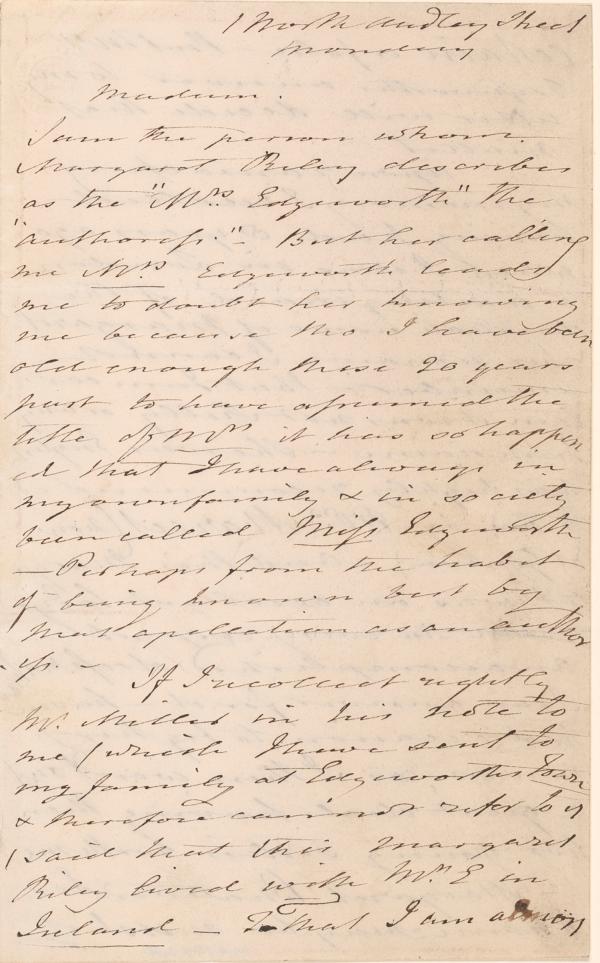 1 North Audley Street
Monday
Madam.
I am the person whom
Margaret Riley describes
as the "Mrs. Edgeworth" the
"authoress." - But her calling
me Mrs Edgeworth leads
me to doubt her knowing
me because tho I have been
old enough these 20 years
past to have assumed the
title of Mrs it has so happen
ed that I have always in
my own family & in society
been called Miss Edgeworth
- Perhaps from the habit
of being known best by
that apellation as an author
ess. -
If I recollect rightly
Mr. Miller in his note to
me (which I have sent to
my family at Edgeworths Town
& therefore cannot refer to it)
said that this Margaret
Riley lived with Mrs E in
Ireland - That I am